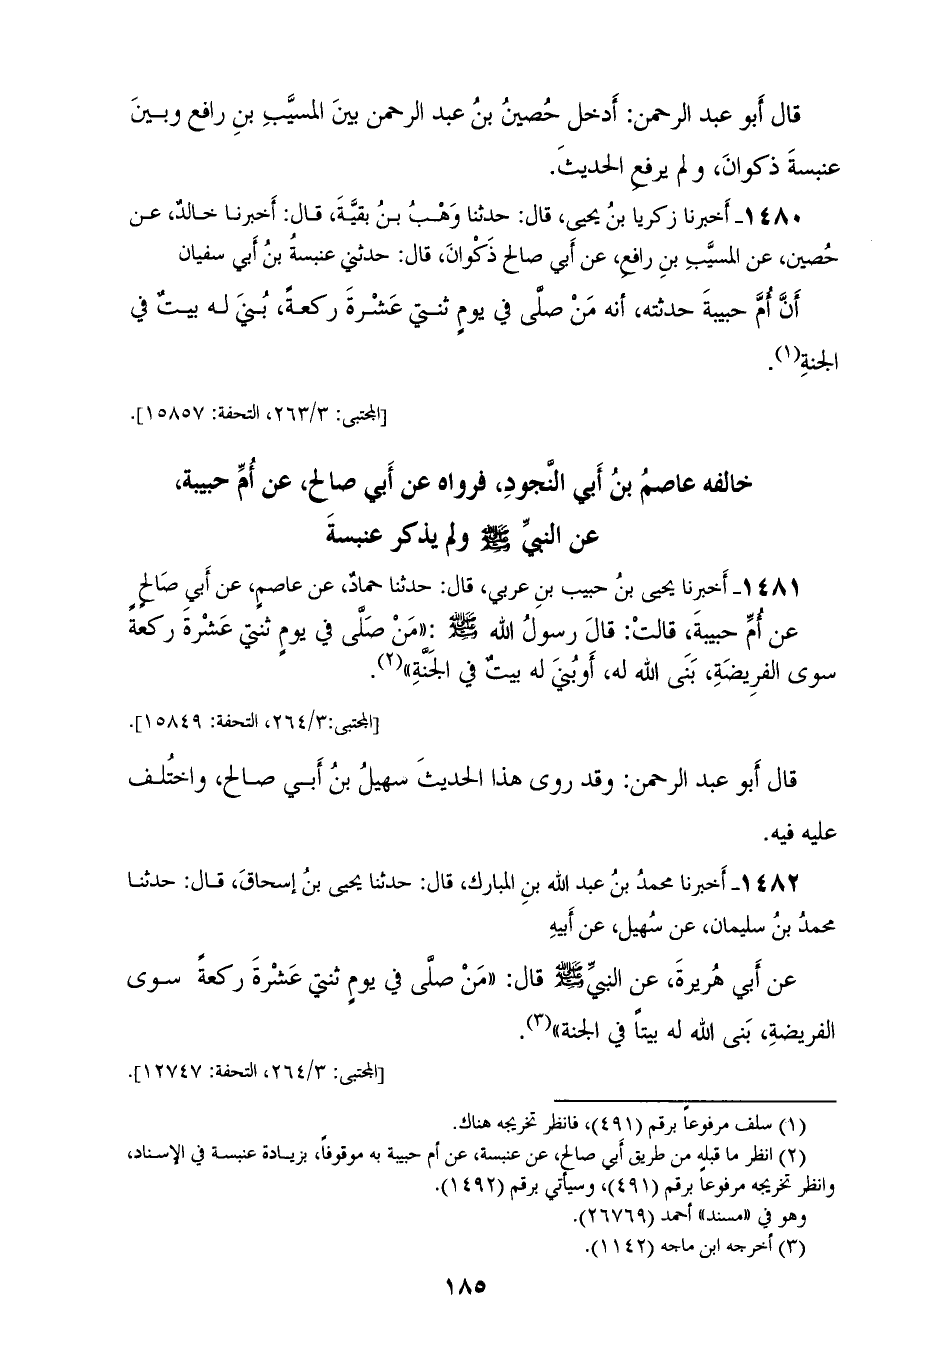 قال أَبو عبد الرحمن: أَدخل حُصينُ بنُ عبد الرحمن بينَ المسيَّبِ بنِ رافع وبينَ
عنبسةَ ذكوانَ، و لم يرفعِ الحديثَ.
١٤٨٠ـ أَخبرنا زكريا بنُ يحيى، قال: حدثنا وَهْبُ بنُ بقيَّةَ، قال: أَخبرنا خالدٌ، عن
حُصين، عن المسيَّبِ بنِ رافعٍ، عن أَبي صالح ذَكْوانَ، قال: حدثني عنبسةُ بنُ أَبي سفيان
أَنَّ أُمَّ حبيبةَ حدثته، أنه مَنْ صلَّى في يومٍ ثنتي عَشْرةَ ركعةً، بُنيَ له بيتٌ في
الجنةِ(١).
[المجتبى: ٢٦٣/٣، التحفة: ١٥٨٥٧].
خالفه عاصمُ بنُ أَبي النَّجودِ، فرواه عن أَبي صالح، عن أُمِّ حبيبة،
عن النبيِّ ﷺ ولم يذكر عنبسةَ
١٤٨١ـ أَخبرنا يحيى بنُ حبيب بنِ عربي، قال: حدثنا حمادٌ، عن عاصمٍ، عن أَبي صَالحٍ
عن أُمِّ حبيبةَ، قالتْ: قالَ رسولُ الله ﷺ :«مَنْ صَلَّى في يومٍ ثنتي عَشْرةَ ركعةً
سوى الفريضَةِ، بَنَى الله له، أَوبُنيَ له بيتٌ في الجَنَّةِ»(٢).
[المجتبى:٢٦٤/٣، التحفة: ١٥٨٤٩].
قال أَبو عبد الرحمن: وقد روى هذا الحديثَ سهيلُ بنُ أَبي صالح، واختُلف
عليه فيه.
١٤٨٢ـ أَخبرنا محمدُ بنُ عبد الله بنِ المبارك، قال: حدثنا يحيى بنُ إسحاقَ، قال: حدثنا
محمدُ بنُ سليمان، عن سُهيل، عن أَبيهِ
عن أَبي هُريرةَ، عن النبيِّ ﷺ قال: «مَنْ صلَّى في يومٍ ثنتي عَشْرةَ ركعةً سوى
الفريضةِ، بَنى الله له بيتاً في الجنة»(٣).
[المجتبى: ٢٦٤/٣، التحفة: ١٢٧٤٧].
(١) سلف مرفوعاً برقم (٤٩١)، فانظر تخريجه هناك.
(٢) انظر ما قبله من طريق أَبي صالح، عن عنبسة، عن أم حبيبة به موقوفاً، بزيادة عنبسة في الإسناد،
وانظر تخريجه مرفوعاً برقم (٤٩١)، وسيأتي برقم (١٤٩٢).
وهو في «مسند» أحمد (٢٦٧٦٩).
(٣) أخرجه ابن ماجه (١١٤٢).
١٨٥